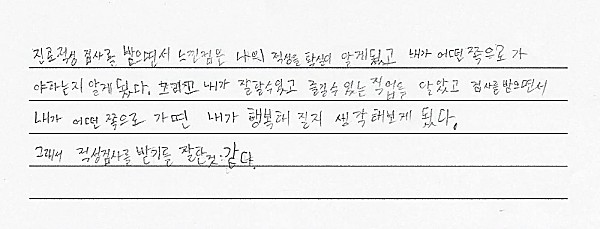 진로적성 검사를 받으면서 느낀점은 나의 적성을 확실히 알게됐고 내가 어떤쪽으로 가
야하는지 알게 됐다. 그리고 내가 잘할수있고 즐길수 있는 직업을 알았고 검사를 받으면서
내가 어떤 쪽으로 가면 내가 행복해 질지 생각해보게 됐다.
그래서 적성검사를 받기를 잘한것 같다.